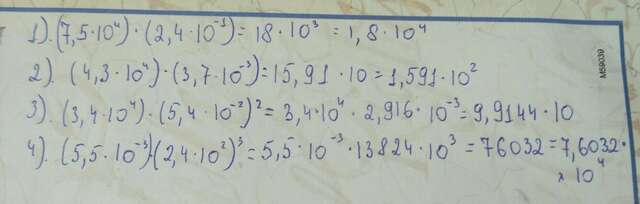 1). (7,5·10⁴)·(2,4·10⁻¹)=18·10³=1,8·10⁴
2). (4,3·10⁴)·(3,7·10⁻³)=15,91·10=1,591·10²
3). (3,4·10⁴)·(5,4·10⁻²)²=3,4·10⁴·2,916·10⁻³=9,9144·10
4). (5,5·10⁻³)·(2,4·10²)³=5,5·10⁻³·13824·10³=76032=7,6032·
×10⁴
M59039